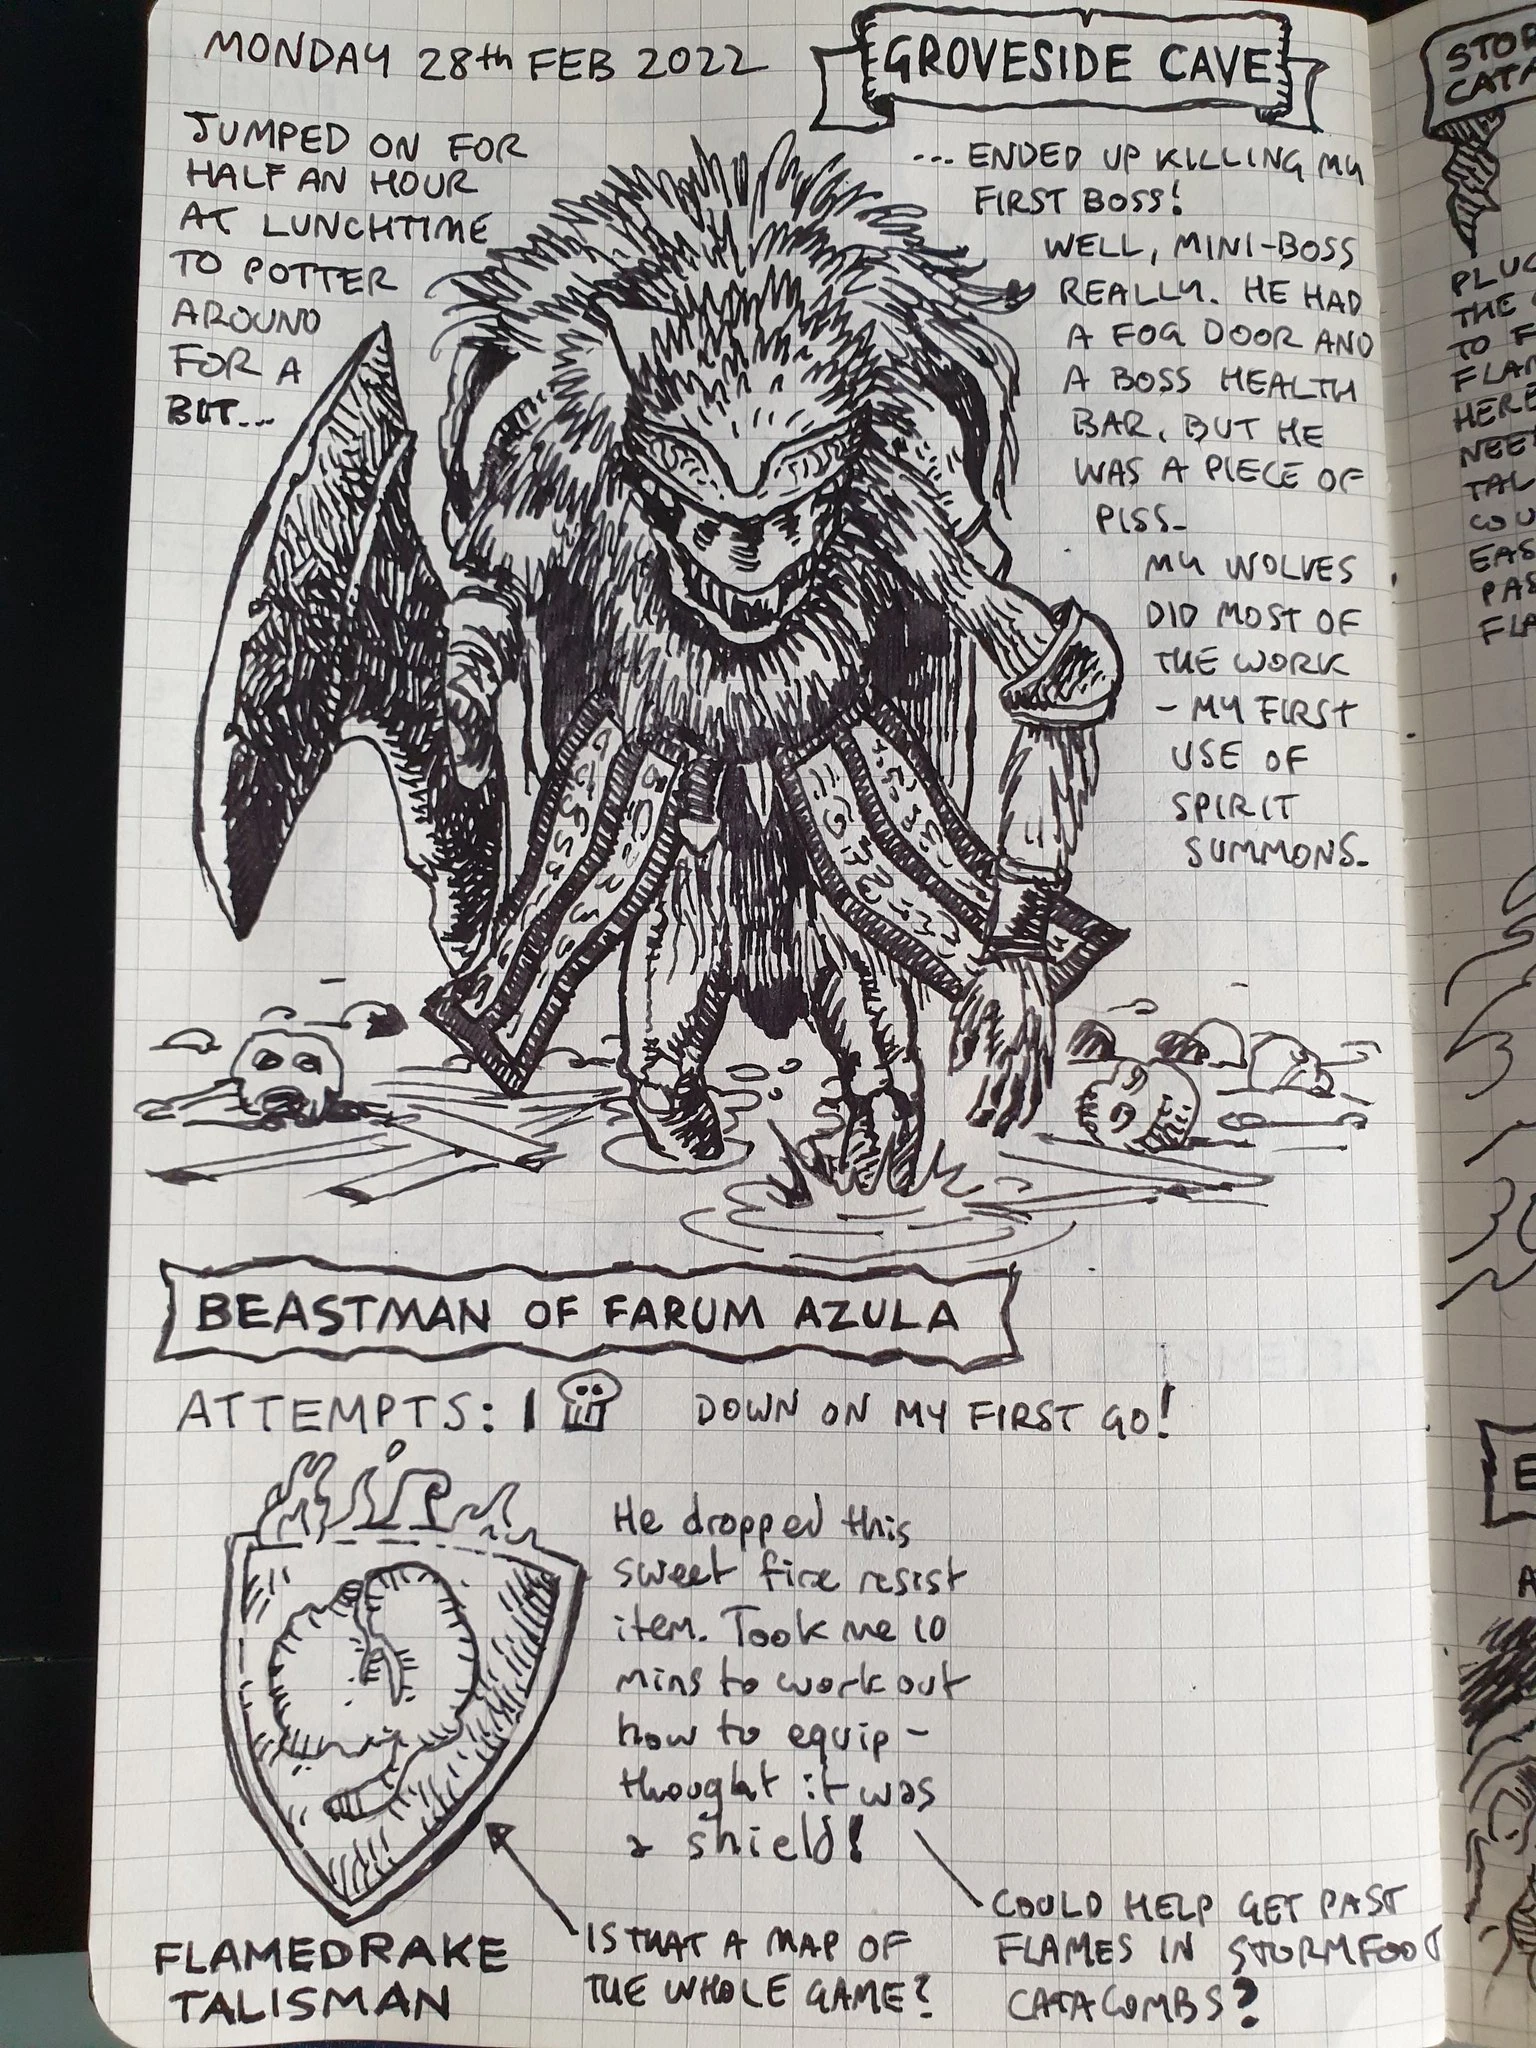 MONDAY 28th FEB 2022
GROVESIDE CAVE
JUMPED ON FOR
HALF AN HOUR
AT LUNCHTIME
TO POTTER
AROUND
FOR A
BUT...
... ENDED UP KILLING MY
FIRST BOSS!
WELL, MINI-BOSS
REALLY. HE HAD
A FOG DOOR AND
A BOSS HEALTH
BAR. BUT HE
WAS A PIECE OF
PISS.
MY WOLVES
DID MOST OF
THE WORK
- MY FIRST
USE OF
SPIRIT
SUMMONS.
BEASTMAN OF FARUM AZULA
ATTEMPTS: 1
DOWN ON MY FIRST GO!
He dropped this
sweet fire resist
item. Took me 10
mins to work out
how to equip -
thought it was
a shield!
FLAMEDRAKE
TALISMAN
IS THAT A MAP OF
THE WHOLE GAME?
COULD HELP GET PAST
FLAMES IN STORMFOOT
CATACOMBS?
THE
TO
HERE